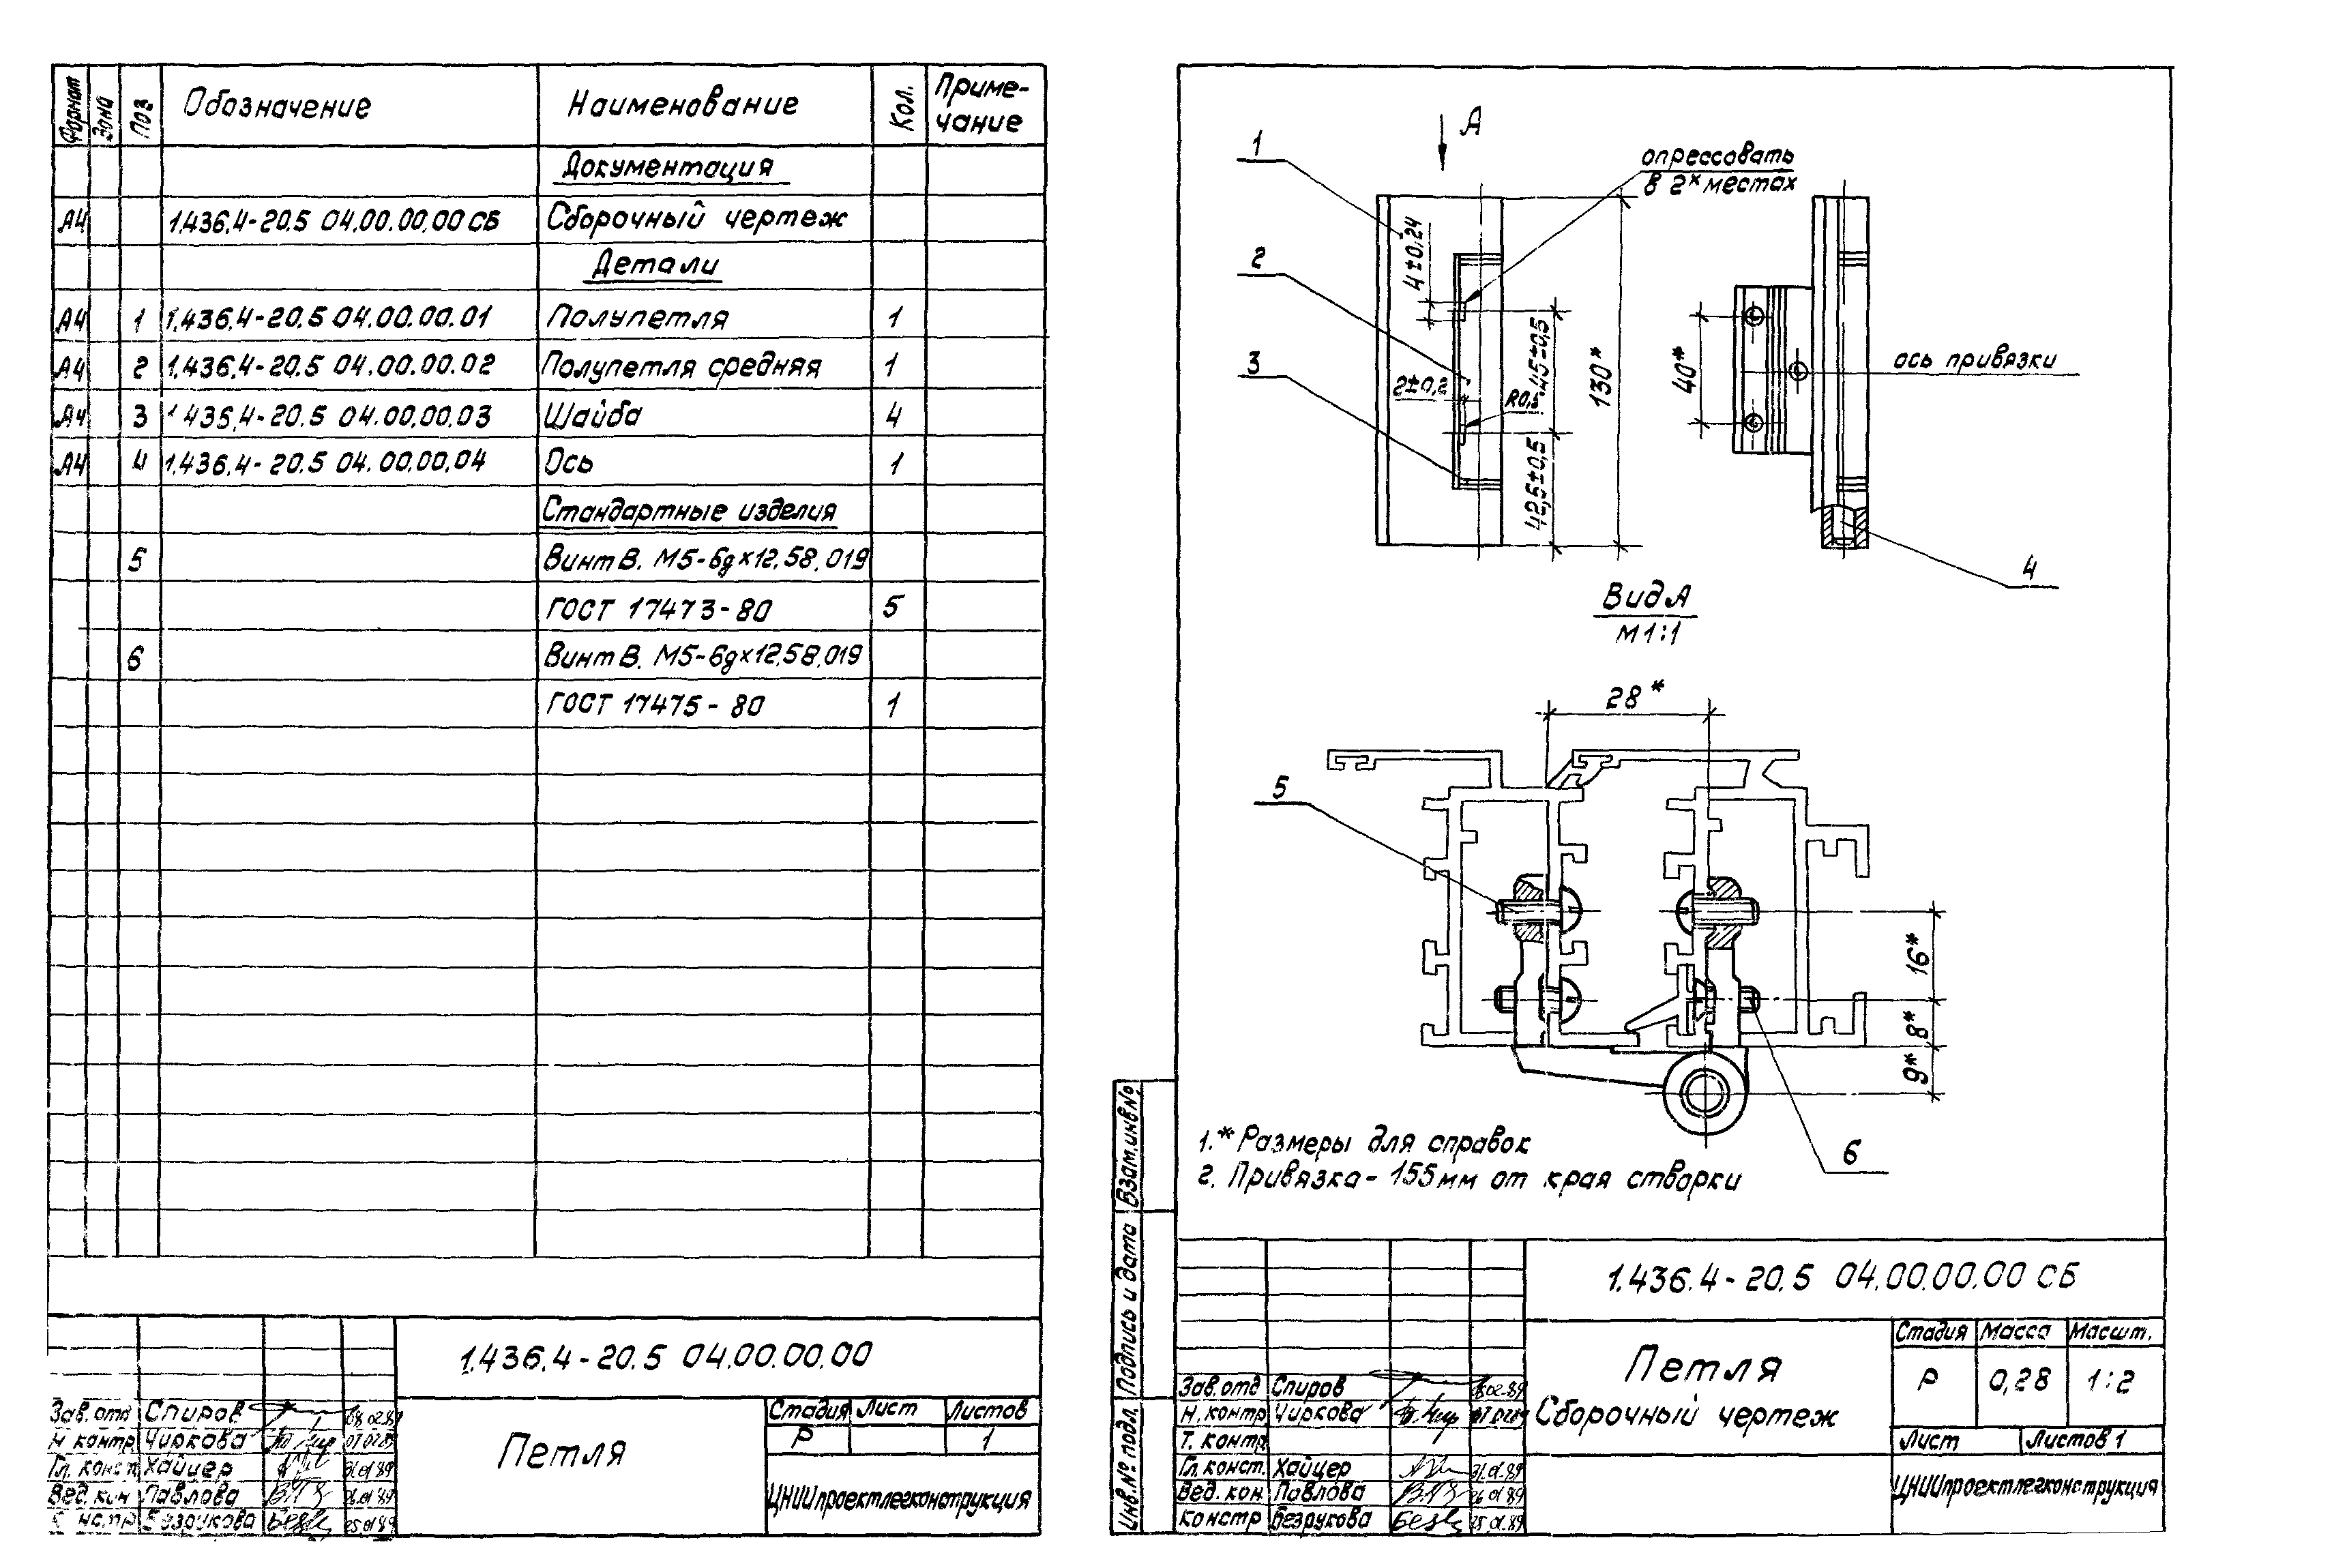 Формат Зона Поз Обозначение Наименование Кол. Приме-
чание
Документация
А4 1.436.4-20.5 04.00.00.00 СБ Сборочный чертеж
Детали
А4 1 1.436.4-20.5 04.00.00.01 Полупетля 1
А4 2 1.436.4-20.5 04.00.00.02 Полупетля средняя 1
А4 3 1 435.4-20.5 04.00.00.03 Шайба 4
А4 4 1.436.4-20.5 04.00.00.04 Ось 1
Стандартные изделия
5 Винт В. М5-6g×12.58.019
ГОСТ 17473-80 5
6 Винт В. М5-6g×12.58.019
ГОСТ 17475-80 1
1.436.4-20.5 04.00.00.00
Зав.отд Спиров 08.02.89
Н контр Чиркова 07.02.89
Гл. конст. Хайцер 31.01.89
Вед. кон Павлова 26.01.89
К нстр Безрукова 25.01.89
Петля
Стадия Лист Листов
Р 1
ЦНИИпроектлегконструкция
А
1
опрессовать
в 2* местах
4±0,24
2
3
2±0,2
R0,5
45±0,5
42,5±0,5
130*
40*
ось привязки
4
Вид А
М 1:1
28*
5
16*
8*
9*
6
1.* Размеры для справок
2. Привязка - 155 мм от края створки
Взам.инв№
Подпись и дата
Инв.№ подл.
1.436.4-20.5 04.00.00.00 СБ
Зав.отд Спиров 08.02.89
Н.контр Чиркова 07.02.89
Т. контр
Гл. конст. Хайцер 31.01.89
Вед. кон. Павлова 26 01.89
Констр Безрукова 25.01.89
Петля
Сборочный чертеж
Стадия Масса Масшт.
Р 0,28 1:2
Лист Листов 1
ЦНИИпроектлегконструкция